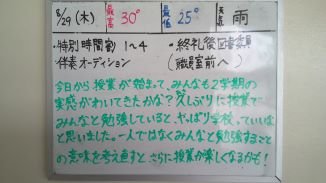 8/29(木) 最高 30° 最低 25° 天気 雨
・特別時間割 1〜4 ・終礼後図書委員
伴奏オーディション (職員室前へ)
今日から授業が始まって、みんなも2学期の
実感がわいてきたかな?久しぶりに授業で
みんなと勉強していると、やっぱり学校っていいな
と思いました。一人ではなくみんなと勉強すること
の意味を考え直すと、さらに授業が楽しくなるかも!